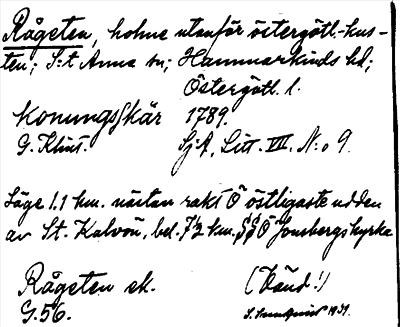 Rågeten, holme utanför östergötl. kus-
ten; S:t Anna sn; Hammarkinds hd;
Östergötl. l.
Konungsskär 1789.
G. Klint. Sj.A, Litt. VII. N:o 9.
Läge 1.1 km. nästan rakt Ö östligaste udden
av St. Kalvön, bel. 7½ km. SSÖ Jonsbergs kyrka
Rågeten ek. (Vänd!)
G.56. 1931.